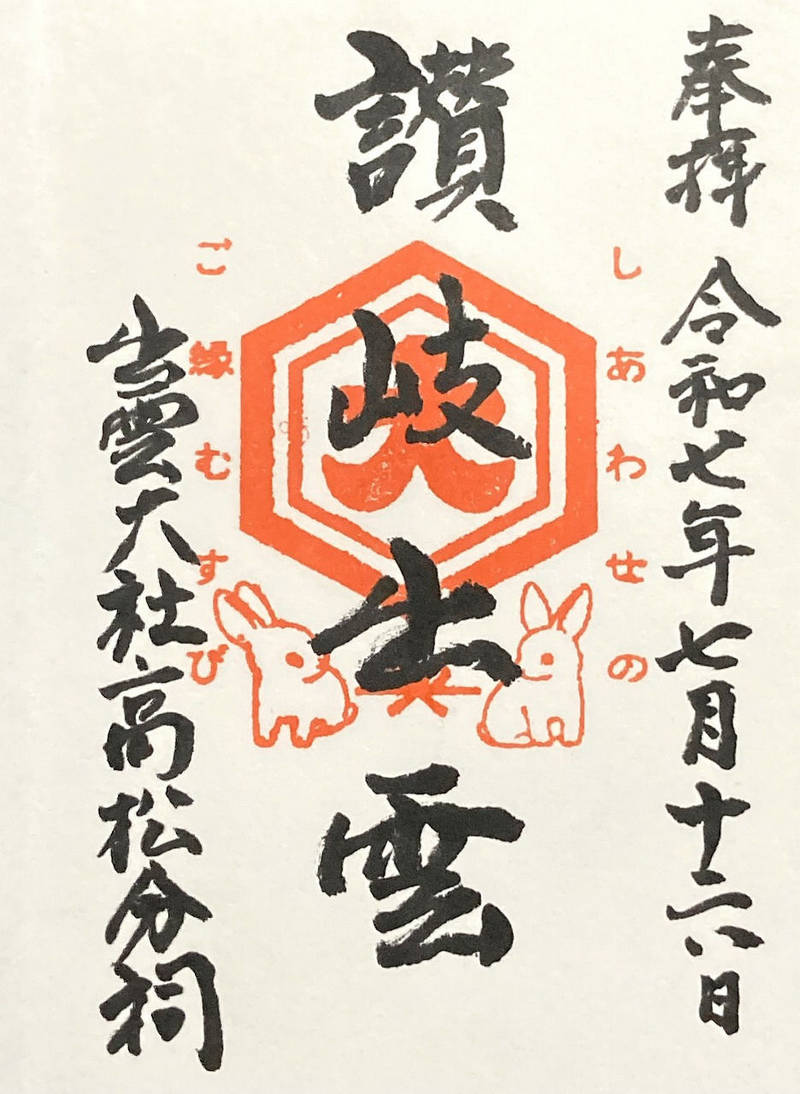 奉拝 令和七年七月十六日
しあわせの
讃岐出雲
ご縁むすび
出雲大社高松分祠